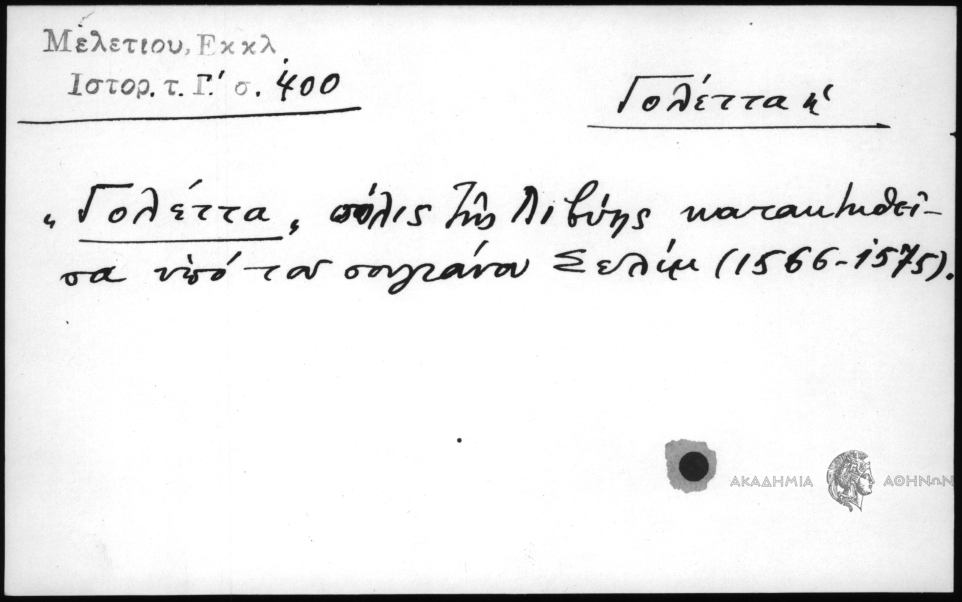 Μελετιου, Εκκλ.
Ιστορ. τ. Γ.' σ. 400
Γολέττα ἡ
„Γολέττα„ πόλις τῆς Λιβύης κατακτηθεῖ-
σα ὑπό του σουλτάνου Σελίμ (1566-1575).
ΑΚΑΔΗΜΙΑ ΑΘΗΝΩΝ